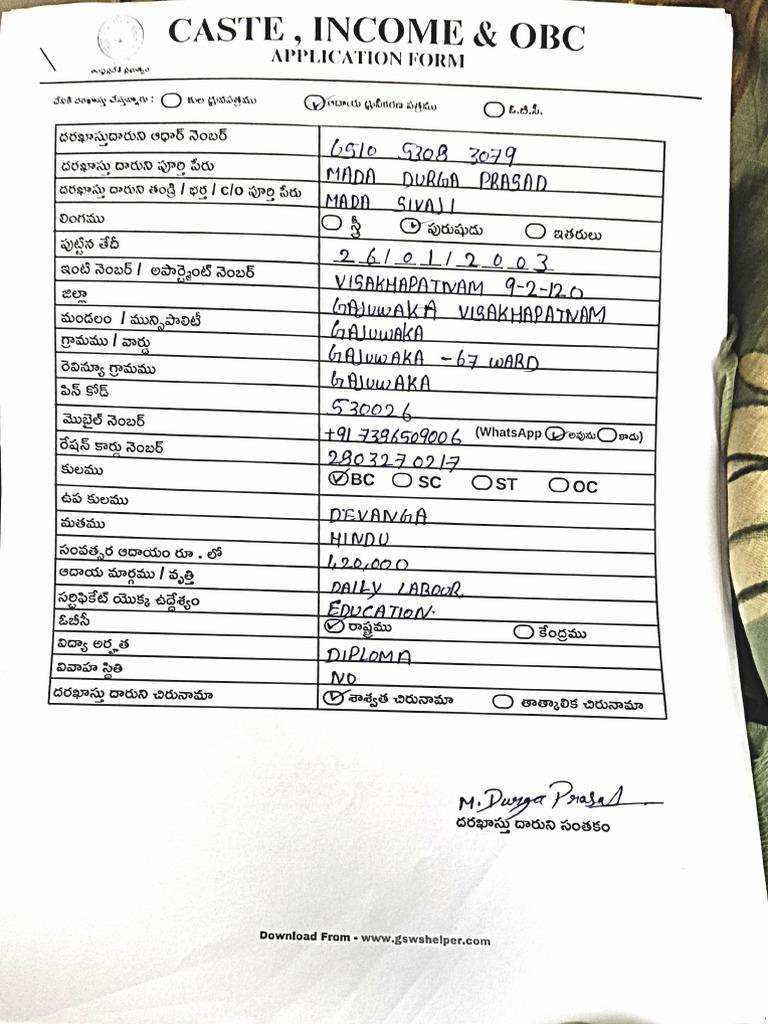 CASTE , INCOME & OBC
APPLICATION FORM
దేనికి దరఖాస్తు చేస్తున్నారు : కుల ధ్రువపత్రము ఆదాయ ధ్రువీకరణ పత్రము ఓ.బి.సి.
దరఖాస్తుదారుని ఆధార్ నెంబర్ 6510 5308 3079
దరఖాస్తు దారుని పూర్తి పేరు MADA DURGA PRASAD
దరఖాస్తు దారుని తండ్రి / భర్త / c/o పూర్తి పేరు MADA SIVAJI
లింగము స్త్రీ పురుషుడు ఇతరులు
పుట్టిన తేదీ 26/01/2003
ఇంటి నెంబర్ / అపార్ట్మెంట్ నెంబర్ VISAKHAPATNAM 9-2-120
జిల్లా GAJUWAKA VISAKHAPATNAM
మండలం / మున్సిపాలిటీ GAJUWAKA
గ్రామము / వార్డు GAJUWAKA -67 WARD
రెవిన్యూ గ్రామము GAJUWAKA
పిన్ కోడ్ 530026
మొబైల్ నెంబర్ +91 7396509006 (WhatsApp అవును కాదు)
రేషన్ కార్డు నెంబర్ 2803270217
కులము BC SC ST OC
ఉప కులము DEVANGA
మతము HINDU
సంవత్సర ఆదాయం రూ . లో 420,000
ఆదాయ మార్గము / వృత్తి DAILY LABOUR.
సర్టిఫికేట్ యొక్క ఉద్దేశ్యం EDUCATION.
ఓబీసీ రాష్ట్రము కేంద్రము
విద్యా అర్హత DIPLOMA
వివాహ స్దితి NO
దరఖాస్తు దారుని చిరునామా శాశ్వత చిరునామా తాత్కాలిక చిరునామా
M. Durga Prasad
దరఖాస్తు దారుని సంతకం
Download From - www.gswshelper.com